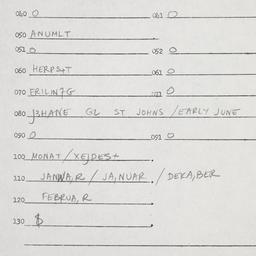 040 0 041 0
050 ANUMLT
051 0 052 0
060 HERPS+T 061 0
070 ERILIN7G 071 0
080 J3HANE GL ST JOHNS / EARLY JUNE
090 0 091 0
100 MONAT / XEJDES+
110 JANWA,R / JA,NUAR / DEKA,BER
120 FEBRUA,R
130 $